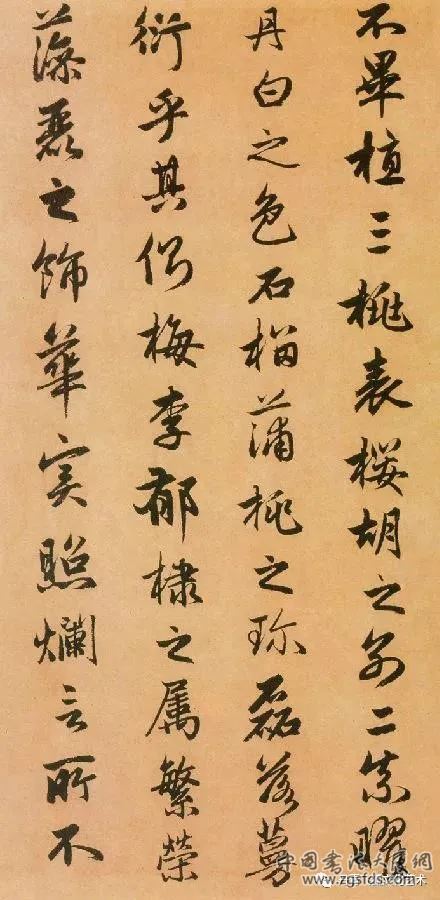 不畢植三桃表樱胡之别二柰曜
丹白之色石榴蒲桃之珎磊落蔓
衍乎其侧梅李郁棣之属繁榮
藻麗之飾華实照爛言所不
中国书法大厦网
www.zgsfds.com